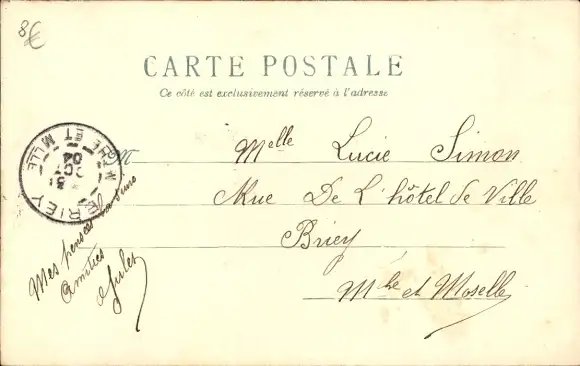 8€
CARTE POSTALE
Ce côté est exclusivement réservé à l'adresse
M
Melle Lucie Simon
Rue De L'hôtel de Ville
Briey
Mthe et Moselle
BRIEY
31
OCT
04
MTHE ET MLLE
Mes pensées
Amitiés
Jules